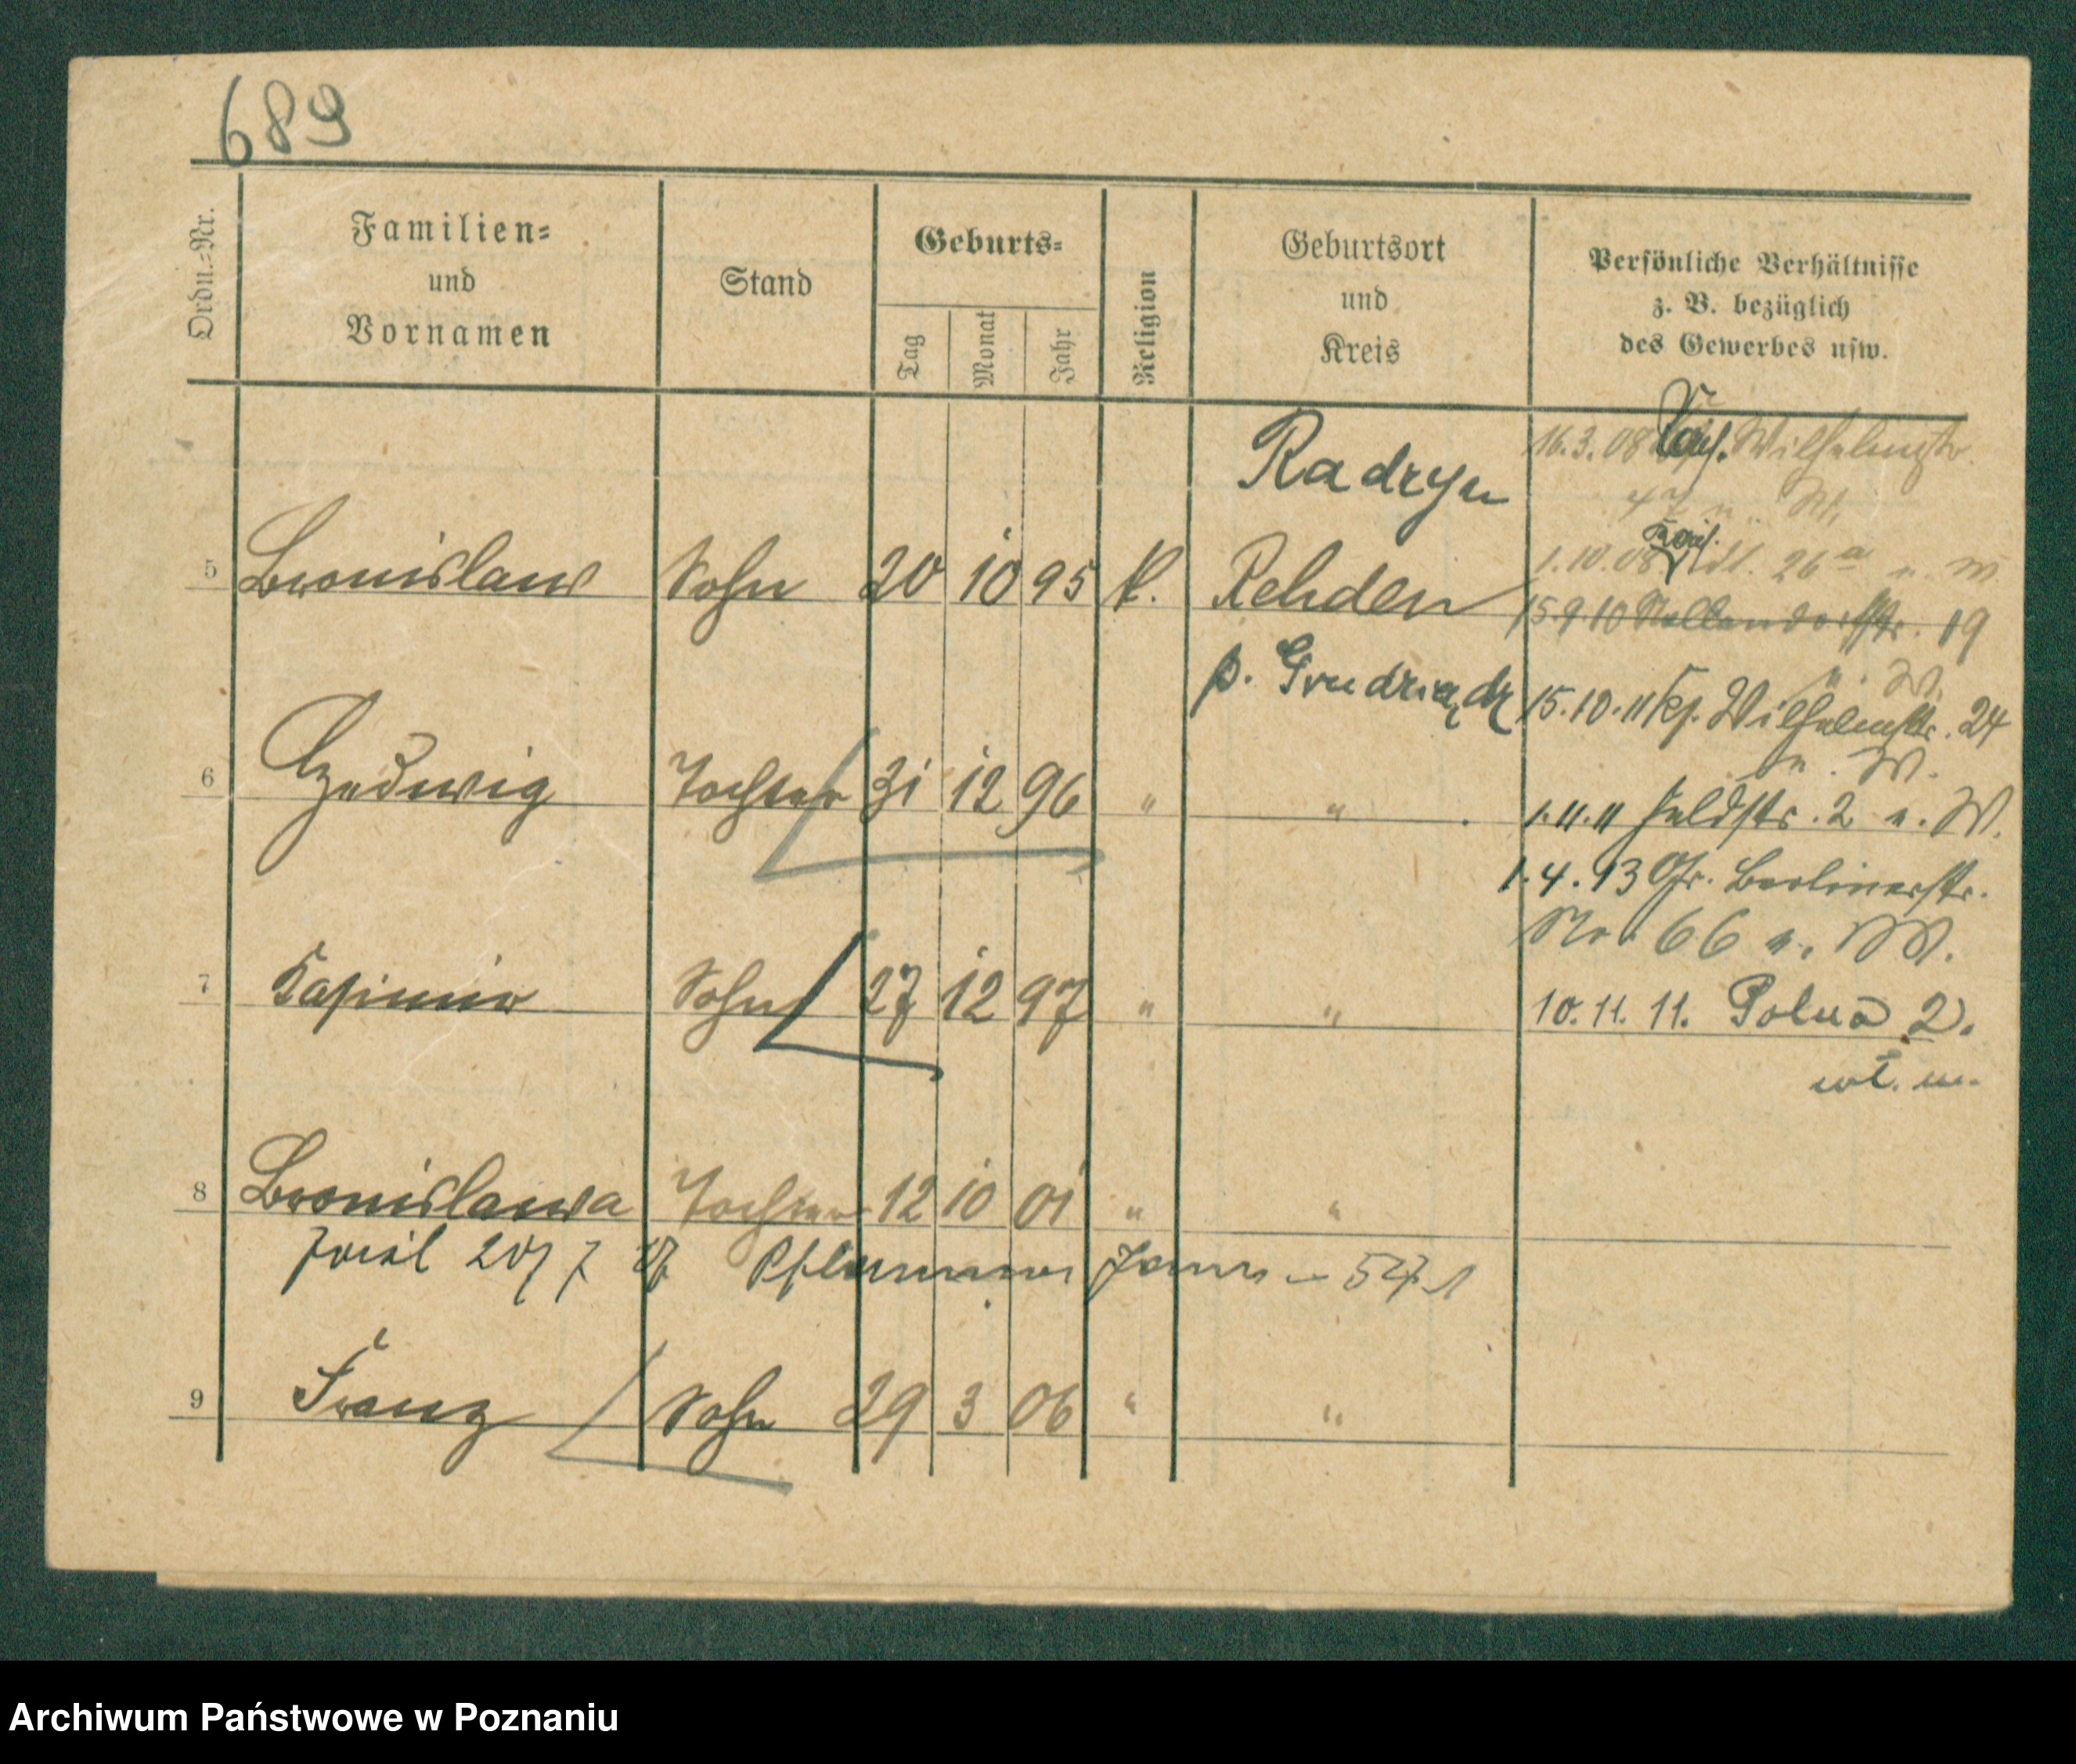 689
Ordn.=Nr.
Familien=
und
Vornamen
Stand
Geburts=
Tag
Monat
Jahr
Religion
Geburtsort
und
Kreis
Persönliche Verhältnisse
z. B. bezüglich
des Gewerbes usw.
Radzyn
16.3.08 Wilhelmstr.
47 u. W.
5 Bronislaw Sohn 20 10 95 k. Rehden
1.10.08 26a u. W
15.9.10 Nollendorfstr. 19
p. Grudziądz
u. W.
15.10.11 Wilhelmstr. 24
u. W.
6 Hedwig Tochter 31 12 96 " "
1.11.11 Feldstr. 2 u. W.
1.4.13 Gr. Berlinerstr.
No. 66 u. W.
7 Kasimir Sohn 27 12 97 " "
10.11.11. Polna 2.
wł. m.
8 Bronislawa Tochter 12 10 01 " "
9 Franz Sohn 29 3 06 " "
Archiwum Państwowe w Poznaniu